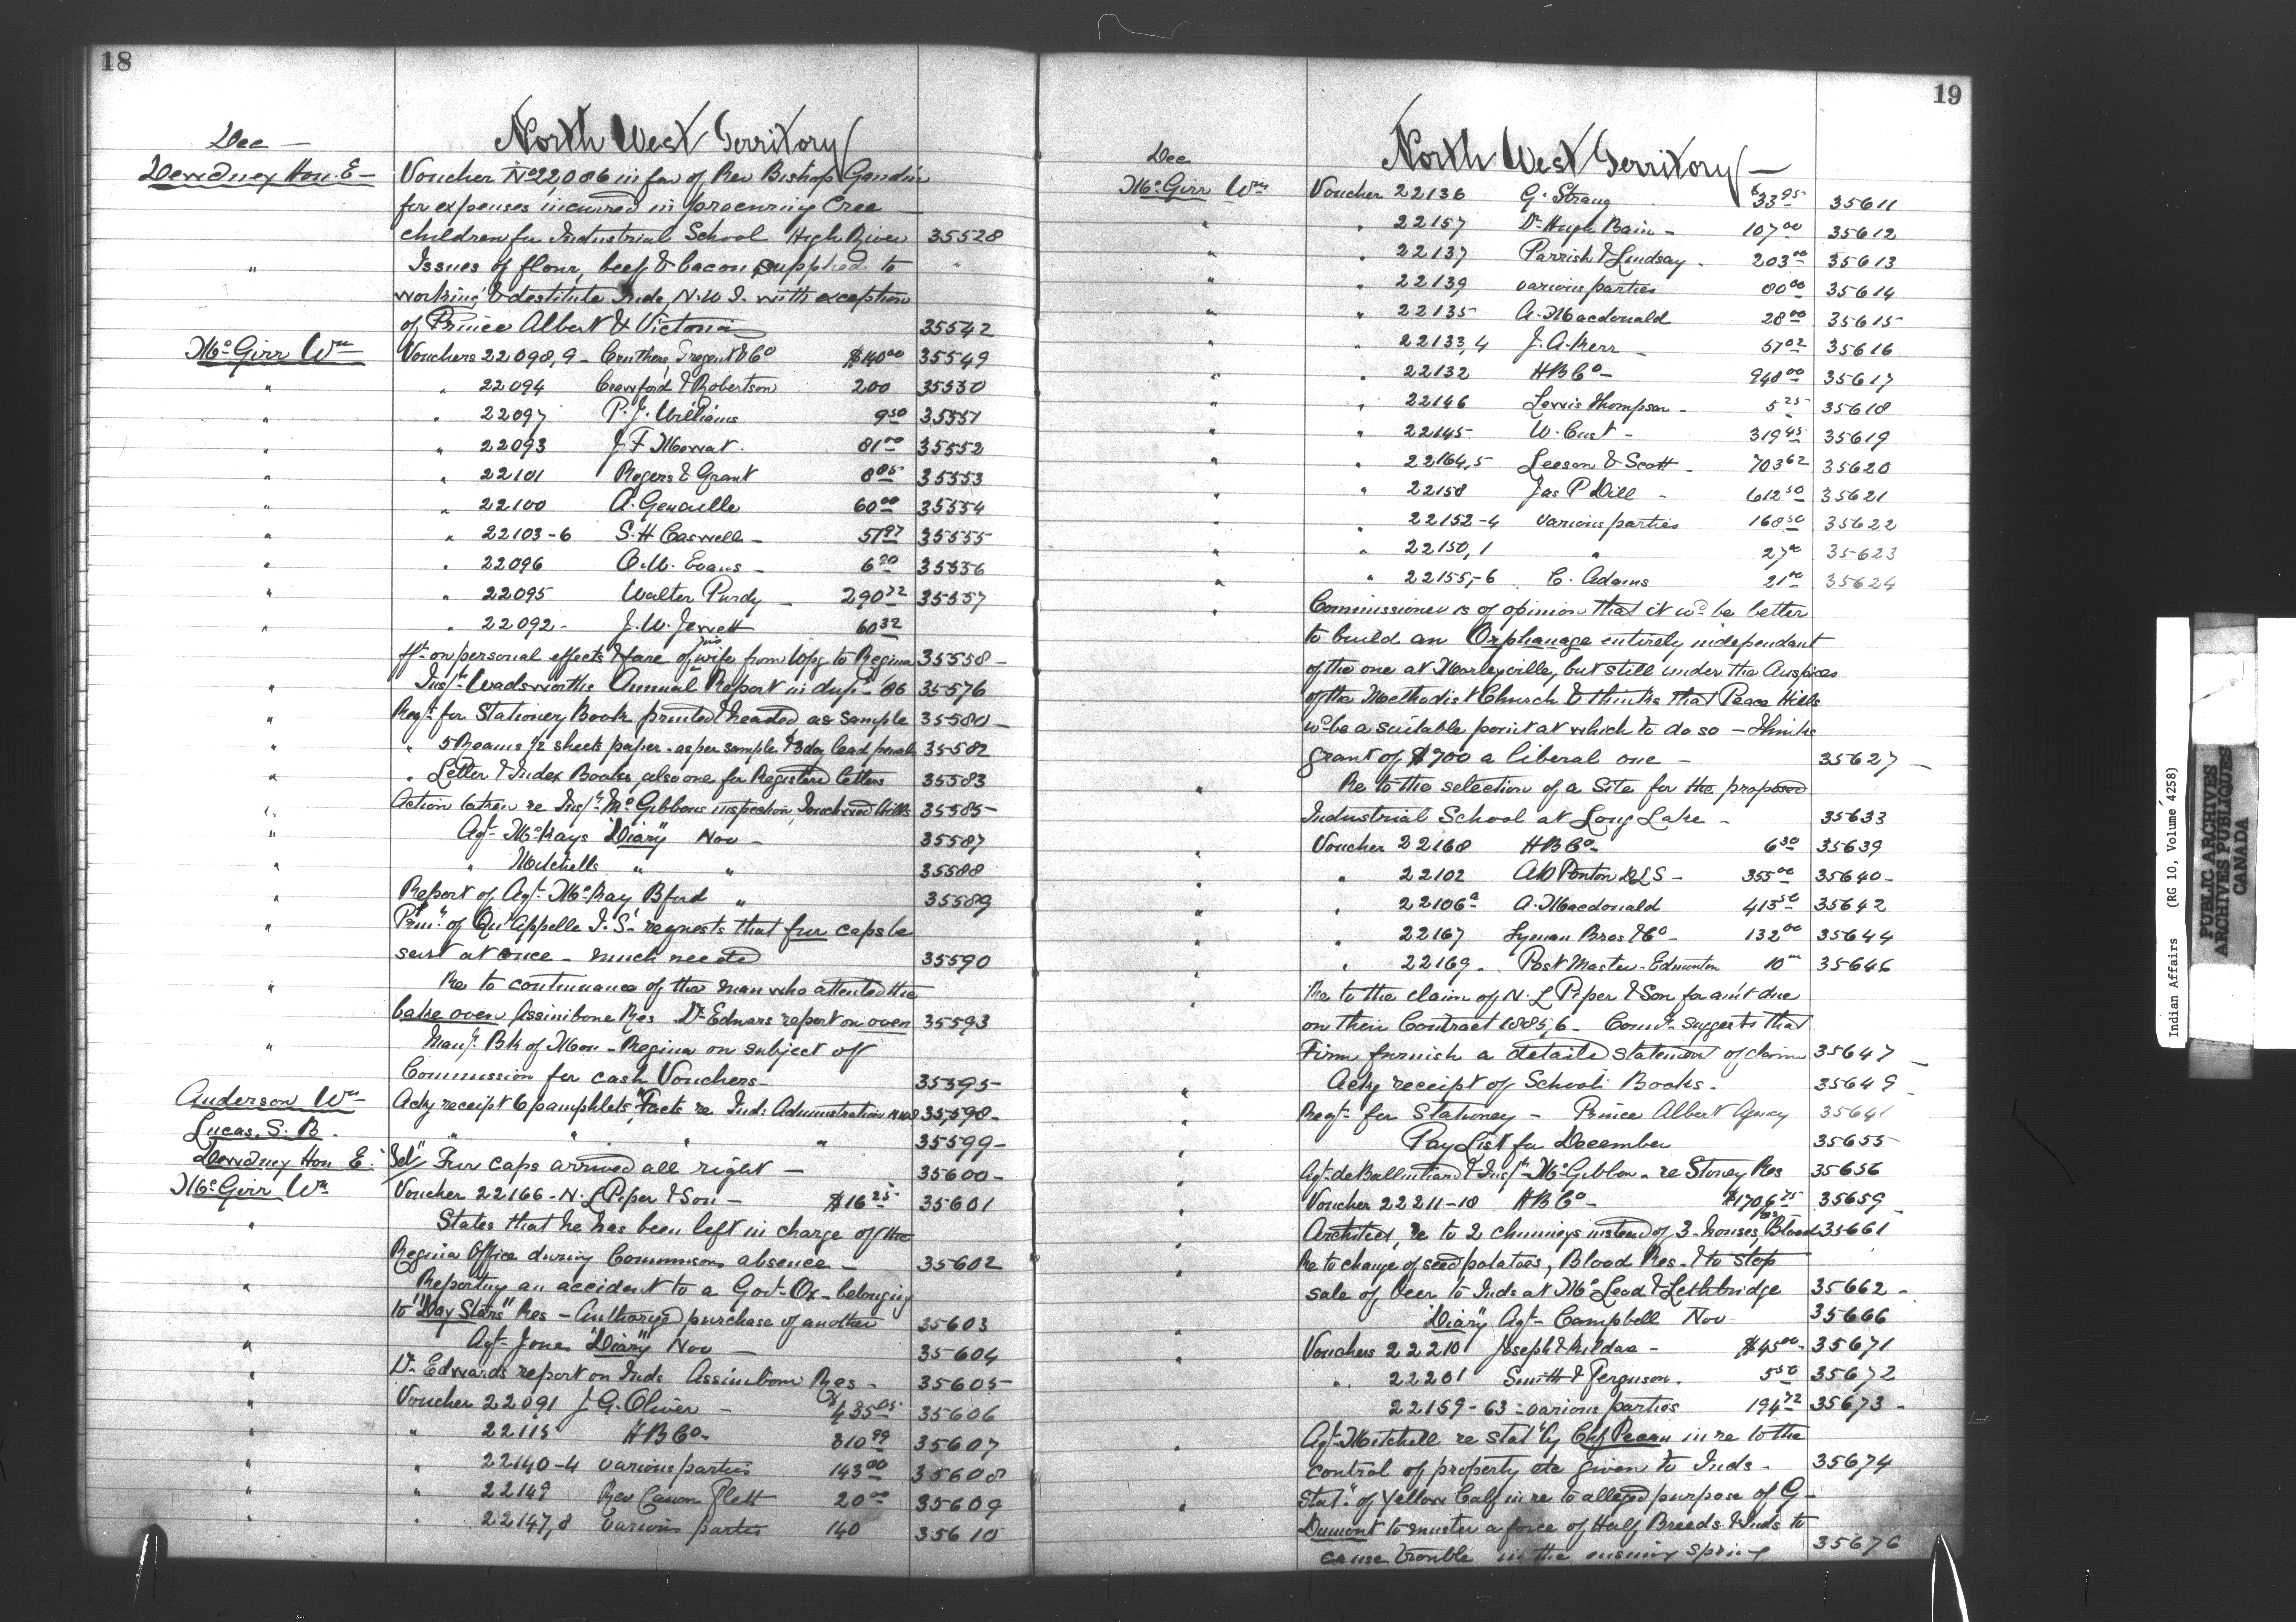 18
Dec —
North West Territory
Dewdney Hon. E — Voucher No 22,086 in fav of Rev Bishop Gandin
for expenses incurred in procuring Cree
children for Industrial School High River 35528
" Issues of flour, beef & bacon supplied to
working & destitute Inds, N.W.T. with exception
of Prince Albert & Victoria 35542
McGirr Wm Vouchers 22098,9 - Tregent & Co $140 00 35549
" " 22094 Crawford & Robertson 200 35550
" " 22097 P. J. Williams 9 50 35551
" " 22093 J F Mowat. 81 00 35552
" " 22101 Rogers & Grant 8 05 35553
" " 22100 A. Genaille 60 00 35554
" " 22103-6 S. H Caswell - 57 97 35555
" " 22096 O. W. Evans - 6 20 35556
" " 22095 Walter Purdy - 290 72 35557
" " 22092 - J. W. Jewett 60 32
frt on personal effects & fare of his wife from Wpg to Regina 35558 -
" Inspr Wadsworths Annual Report in dupl '86 35576
" Reqt for Stationery Book printed & headed as sample 35580 -
" " 5 Reams 1/2 sheets paper. as per sample & 3 doz lead pencils 35582
" " Letter & Index Books, also one for Registered letters 35583
" Action taken re Inspr McGibbons inspection, Touchwood Hills 35585 -
" Agt McKays "Diary" Nov - 35587
" " Mitchells " " 35588
" Report of Agt McKay Bford " 35589
" Prinl of Qu'Appelle I. S. requests that fur caps be
sent at once - much needed 35590
" Re to continuance of the man who attented the
bake oven Assinibone Res Dr Edwars report on oven 35593
" Manr Bk of Mon - Regina on subject off
Commission for cash Vouchers - 35595 -
Anderson Wm Ackg receipt 6 pamphlets, "Facts re Ind: Administration NW 35,598 -
Lucas, S. B. " " " " 35599 -
Dewdney Hon E. Tel" Fur caps arrived all right — 35600 -
McGirr Wm Voucher 22166 - N. L Piper & Son - $16 25 35601
" States that he has been left in charge of the
Regina Office during Commrs absence - 35602
" Reporting an accident to a Govt Ox - belonging
to "Day Stars" Res - Authorized purchase of another 35603
" Agt Jones "Diary" Nov - 35604
" Dr Edwards report on Inds Assinibom Res - 35605 -
" Voucher 22091 J. G. Oliver - $435 05 35606
" " 22115 H B Co - 810 99 35607
" " 22140-4 various parties 143 00 35608
" " 22149 Rev Canon Flett 20 00 35609
" " 22147,8 various parties 140 35610
19
Dec
North West Territory —
McGirr Wm Voucher 22136 G. Strang $33 95 35611
" " 22157 Dr Hugh Bain - 107 00 35612
" " 22137 Parrish & Lindsay - 203 00 35613
" " 22139 various parties 80 00 35614
" " 22135 A. Macdonald 28 00 35615
" " 22133,4 J. A. Kerr - 57 02 35616
" " 22132 H B Co - 948 00 35617
" " 22146 Lewis Thompson - 5 25 35618
" " 22145 W. Cust - 319 45 35619
" " 22164,5 Leeson & Scott - 703 62 35620
" " 22158 Jas P Dill - 612 50 35621
" " 22152-4 various parties 168 50 35622
" " 22150,1 " 27 00 35623
" " 22155,-6 C. Adams 21 00 35624
" Commissioner is of opinion that it wd be better
to build an Orphanage entirely independant
of the one at Morleyville, but still under the Auspices
of the Methodist Church & thinks that Peace Hills
wd be a suitable point at which to do so - Thinks
grant of $700 a liberal one - 35627 -
" Re to the selection of a Site for the proposed
Industrial School at Long Lake - 35633
" Voucher 22168 H B Co - 6 30 35639
" " 22102 A W Ponton D L S - 355 00 35640 -
" " 22106a A. Macdonald 413 50 35642
" " 22167 Lyman Bros & Co - 132 00 35644
" " 22169 - Post Master - Edmonton 10 00 35646
" Re to the claim of N. L Piper & Son for am't due
on their Contract 1885,6 - Comr suggests that
Firm furnish a detailed statement of claim 35647 -
" Ackg receipt of School Books - 35649 -
" Reqt for Stationey - Prince Albert Agency 35641
" Pay List for December 35655
" Agt de Ballinhard & Inspr McGibbon - re Stoney Res 35656
" Voucher 22211-18 H B Co - $1706 75 35659
" Architect, re to 2 chimneys instead of 3 - houses, Blood Res - 35661
" Re to change of seed potatoes, Blood Res. & to stop
sale of beer to Inds at McLeod & Lethbridge 35662 -
" "Diary" Agt Campbell Nov 35666
" Vouchers 22210 Joseph & Kildae - $45 00 - 35671
" " 22201 Smith & Ferguson. 5 50 35672
22159-63 - various parties 194 72 35673 -
" Agt Mitchell re stat' by Chf Pecan in re to the
control of property etc given to Inds - 35674
" Stat' of Yellow Calf in re to alleged purpose of G -
Dumont to muster a force of Half Breeds & Inds to
cause trouble in the ensuing spring 35676
Indian Affairs (RG 10, Volume 4258)
PUBLIC ARCHIVES
ARCHIVES PUBLIQUES
CANADA